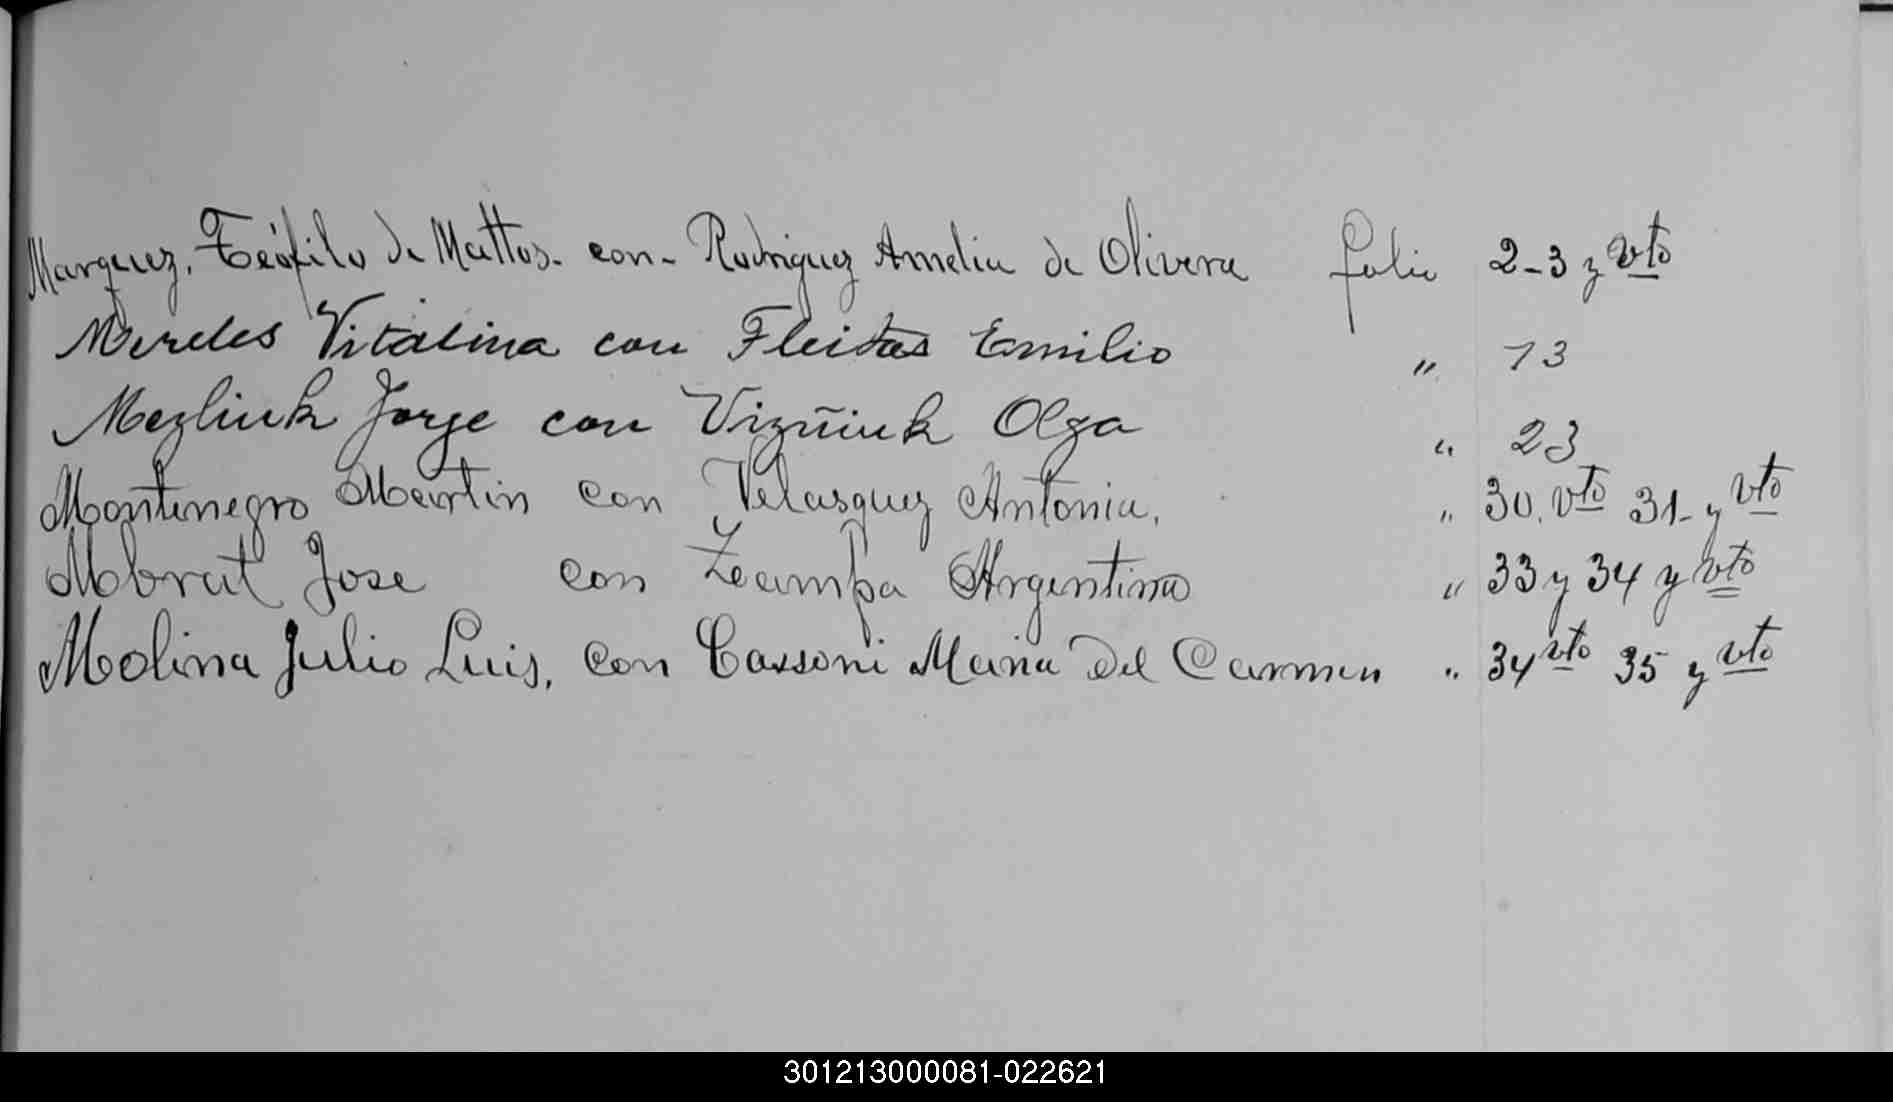 Marquez, Teófilo de Mattos - con - Rodriguez Amelia de Olivera folio 2-3 y vto
Mereles Vitalina con Fleitas Emilio " 13
Mezliuk Jorge con Vizñiuk Olga " 23
Montenegro Martin con Velasquez Antonia, " 30. vto 31- y vto
Jose con Zampa Argentina " 33 y 34 y vto
Molina Julio Luis, con Cassoni Maria Del Carmen " 34 vto 35 y vto
301213000081-022621